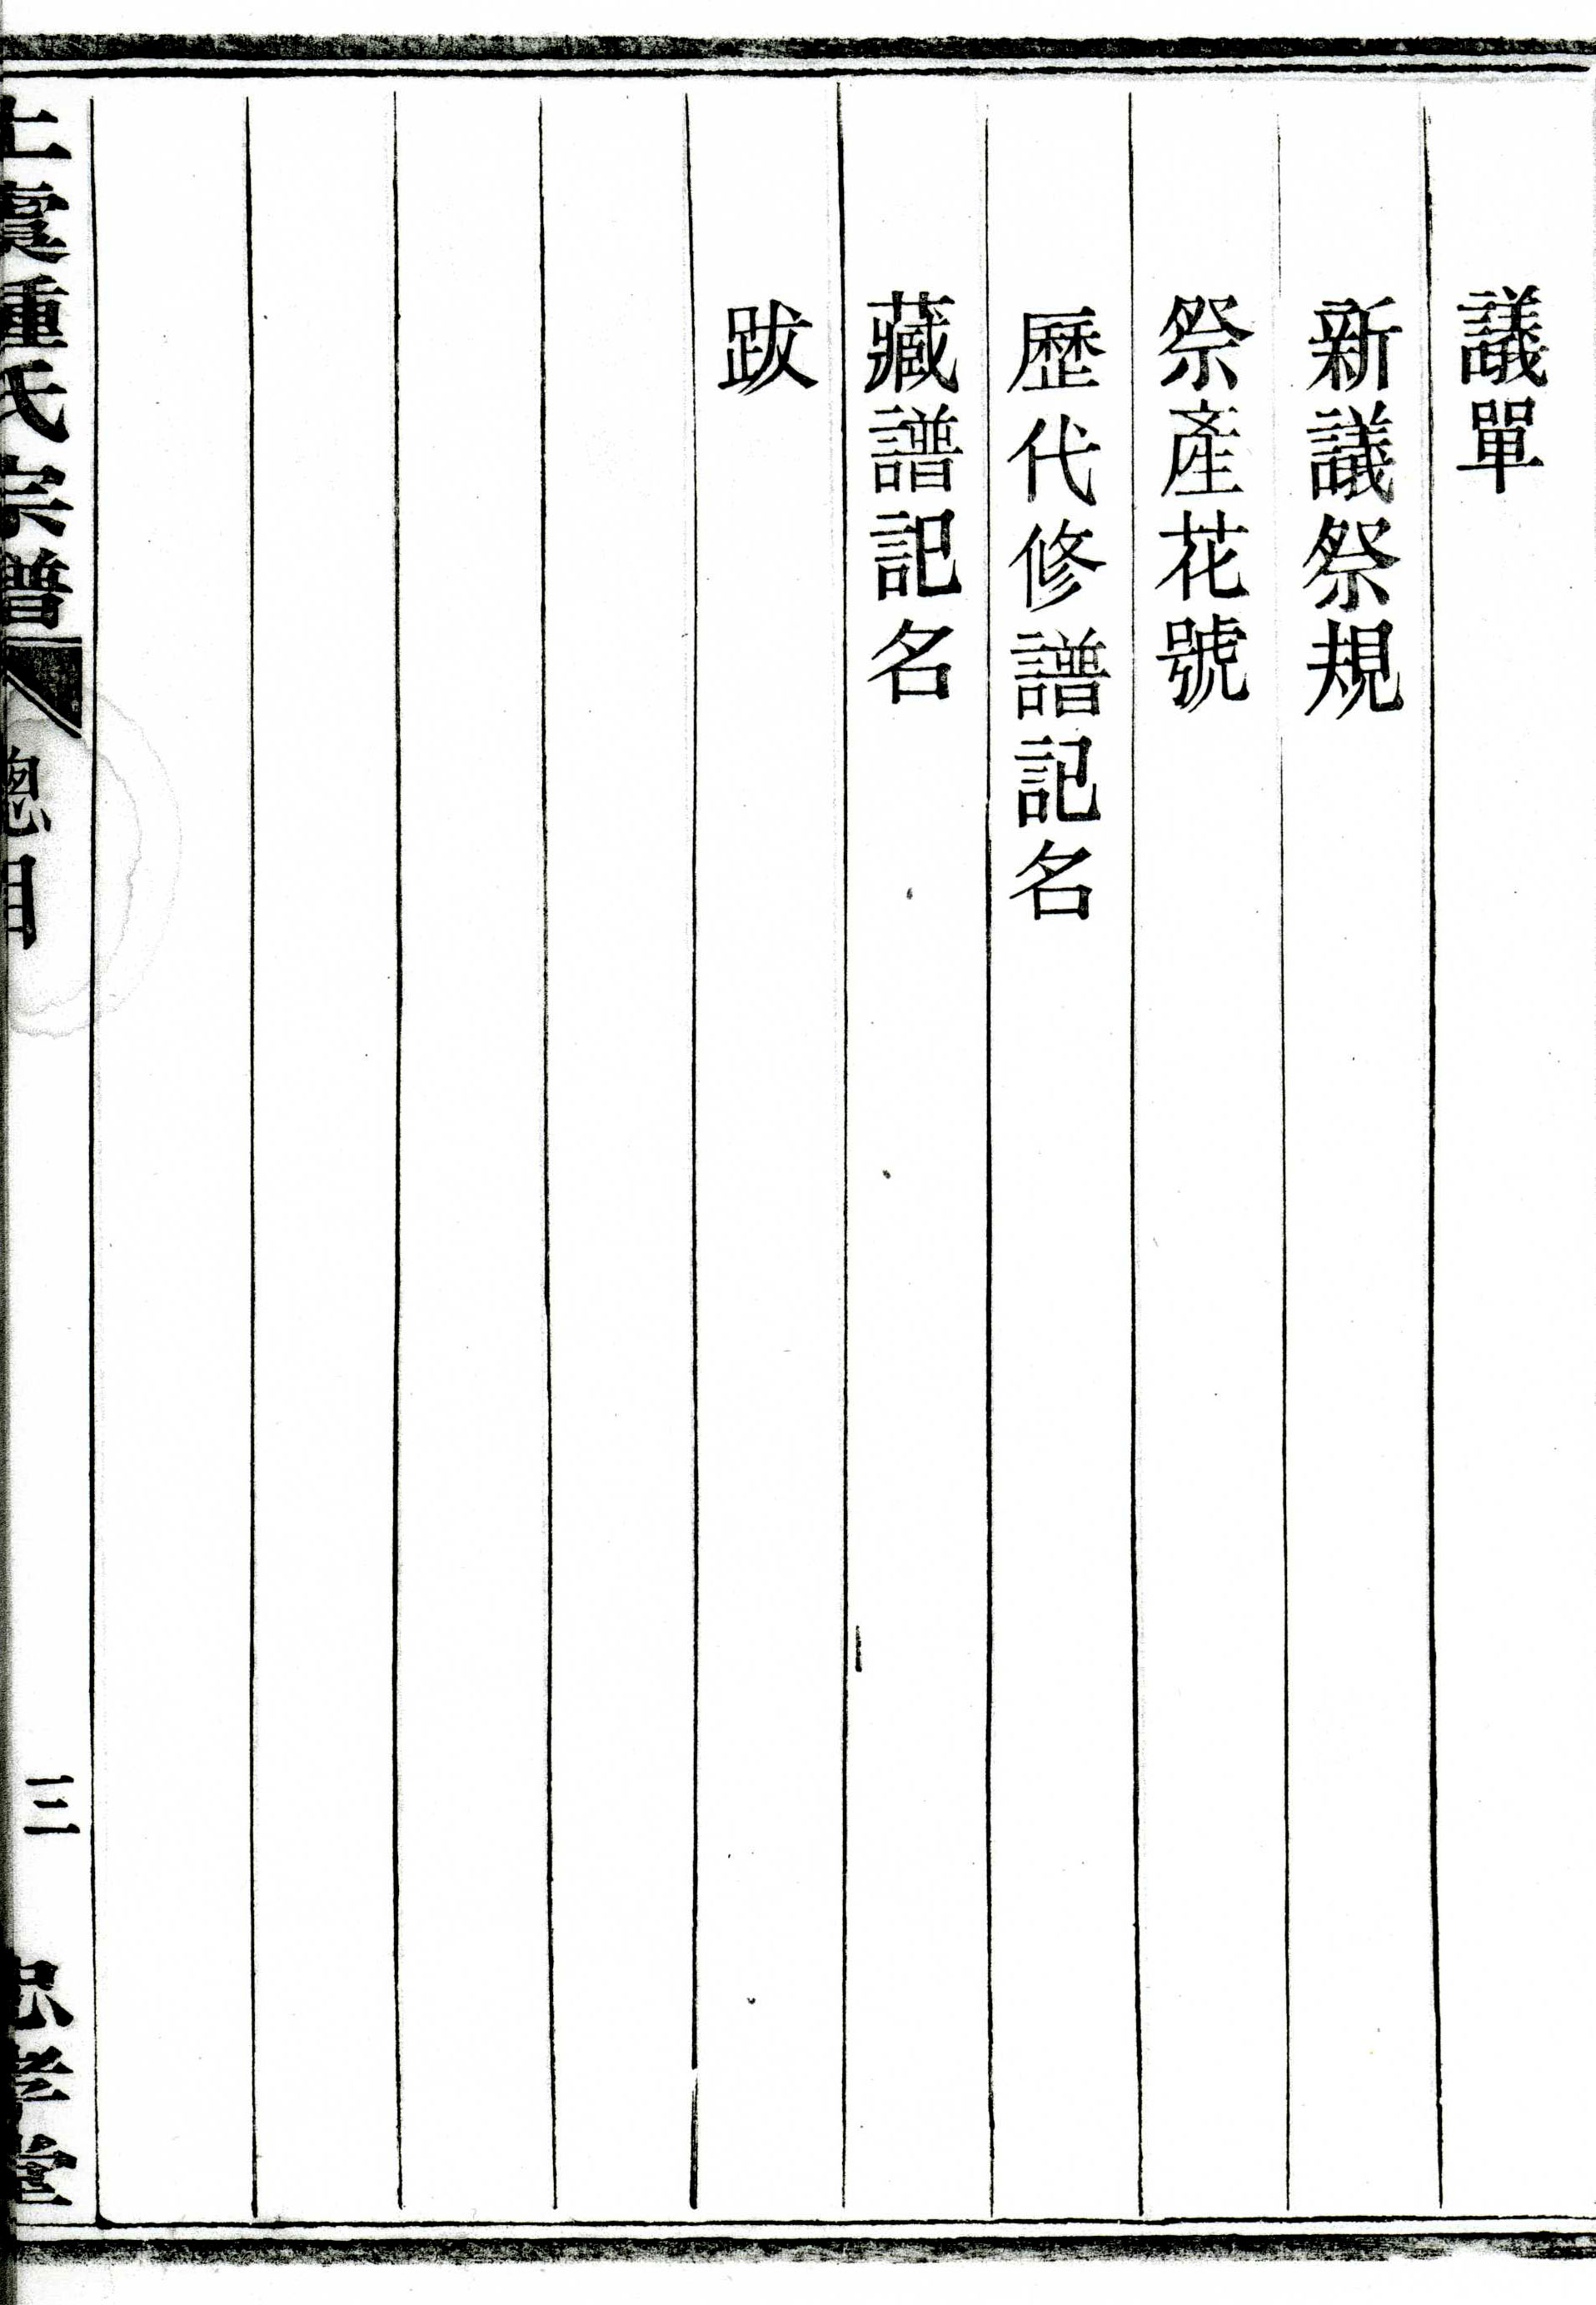 議單
新議祭規
祭產花號
歷代修譜記名
藏譜記名
跋
上虞氏宗譜
總目
三
忠孝堂